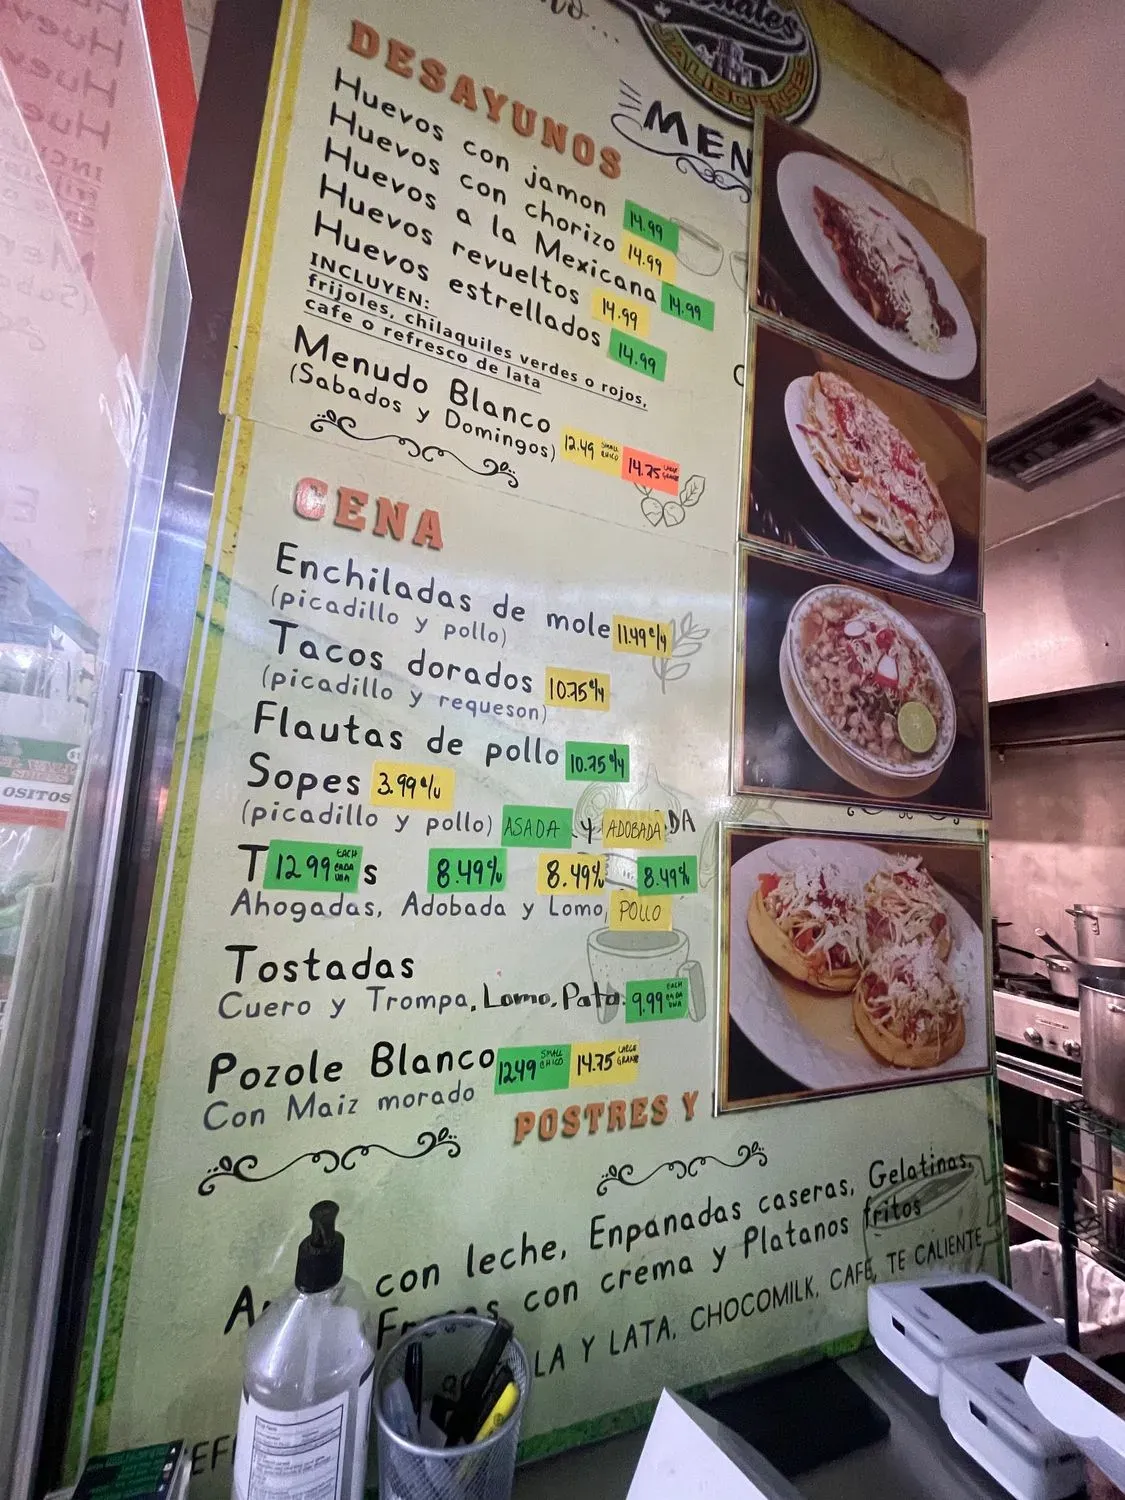 JALISCIENSE
MEN
DESAYUNOS
Huevos con jamon 14.99
Huevos con chorizo 14.99
Huevos a la Mexicana 14.99
Huevos revueltos 14.99
Huevos estrellados 14.99
INCLUYEN:
frijoles, chilaquiles verdes o rojos,
cafe o refresco de lata
Menudo Blanco
(Sabados y Domingos) 12.49 SMALL CHICO 14.75 LARGE GRANDE
CENA
Enchiladas de mole 11.49 c/u
(picadillo y pollo)
Tacos dorados 10.75 c/u
(picadillo y requeson)
Flautas de pollo 10.75 c/u
Sopes 3.99 c/u
(picadillo y pollo) ASADA y ADOBADA DA
T 12.99 EACH CADA UNA s 8.49 c/u 8.49 c/u 8.49 c/u
Ahogadas, Adobada y Lomo, POLLO
Tostadas
Cuero y Trompa, Lomo, Pata. 9.99 EACH CADA UNA
Pozole Blanco 12.49 SMALL CHICO 14.75 LARGE GRANDE
Con Maiz morado
POSTRES Y
con leche, Enpanadas caseras, Gelatinas,
con crema y Platanos fritos
LA Y LATA, CHOCOMILK, CAFE, TE CALIENTE
OSITOS